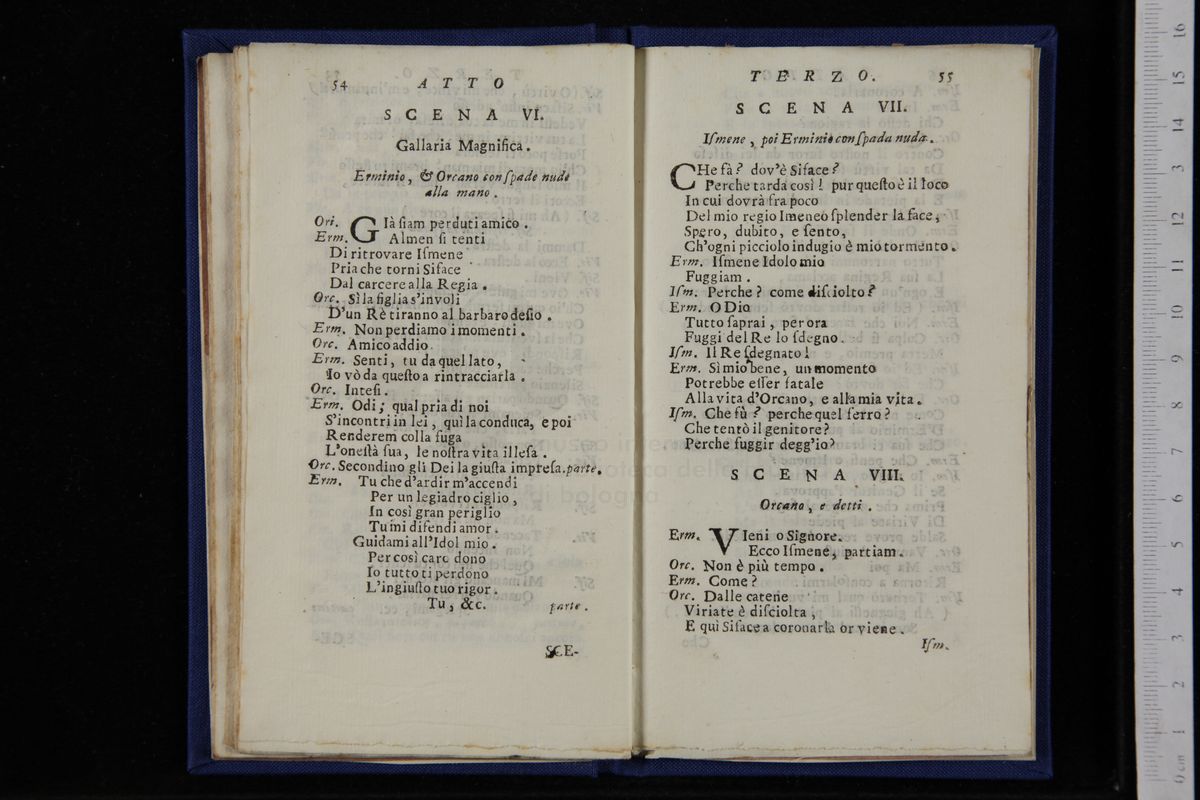 54 ATTO
SCENA VI.
Gallaria Magnifica.
Erminio, & Orcano con ſpade nude
alla mano.
Ori. Già ſiam perduti amico.
Erm. Almen ſi tenti
Di ritrovare Iſmene
Pria che torni Siface
Dal carcere alla Regia.
Orc. Sì la figlia s'involi
D'un Rè tiranno al barbaro deſio.
Erm. Non perdiamo i momenti.
Orc. Amico addio.
Erm. Senti, tu da quel lato,
Io vò da queſto a rintracciarla.
Orc. Inteſi.
Erm. Odi; qual pria di noi
S'incontri in lei, quì la conduca, e poi
Renderem colla fuga
L'oneſtà ſua, le noſtra vita illeſa.
Orc. Secondino gli Dei la giuſta impreſa. parte.
Erm. Tu che d'ardir m'accendi
Per un legiadro ciglio,
In così gran periglio
Tu mi difendi amor.
Guidami all'Idol mio.
Per così caro dono
Io tutto ti perdono
L'ingiuſto tuo rigor.
Tu, &c. parte.
SCE-
TERZO. 55
SCENA VII.
Iſmene, poi Erminio con ſpada nuda.
CHe fà? dov'è Siface?
Perche tarda così! pur queſto è il loco
In cui dovrà fra poco
Del mio regio Imeneo ſplender la face,
Spero, dubito, e ſento,
Ch'ogni picciolo indugio è mio tormento.
Erm. Iſmene Idolo mio
Fuggiam.
Iſm. Perche? come diſciolto?
Erm. O Dio
Tutto ſaprai, per ora
Fuggi del Re lo ſdegno.
Iſm. Il Re ſdegnato!
Erm. Sì mio bene, un momento
Potrebbe eſſer fatale
Alla vita d'Orcano, e alla mia vita.
Iſm. Che fù? perche quel ferro?
Che tentò il genitore?
Perche fuggir degg'io?
SCENA VIII.
Orcano, e detti.
Erm. VIeni o Signore.
Ecco Iſmene, partiam.
Orc. Non è più tempo.
Erm. Come?
Orc. Dalle catene
Viriate è diſciolta,
E quì Siface a coronarla or viene.
Iſm.